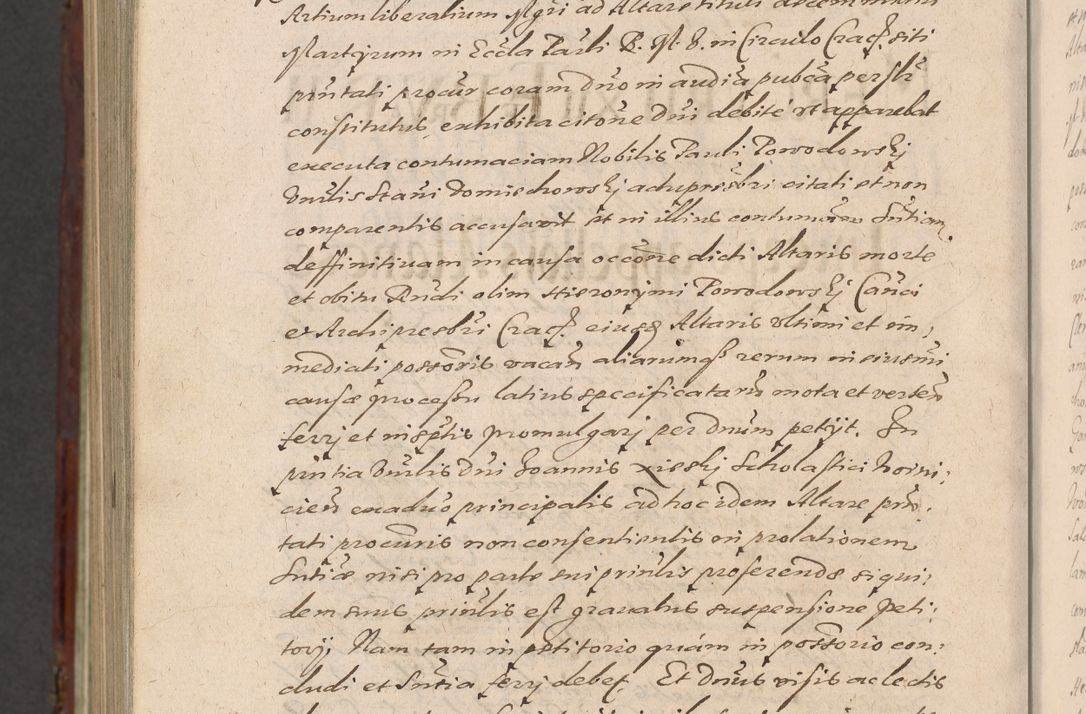 Artium liberalium Mgri ad Altare tituli decem millium
Martyrum in Eccla Pauli B. M. V. in Circulo Crac. siti
pñntati procur coram dno in audia pubca perslr
constitutus, exhibita citone Dni debite vt apparebat
executa contumaciam Nobilis Pauli Powodowskj
Dnilis Stani Domiechowskj actu pribri citati et non
comparentis accusavit et in illius contumam Sntiam
deffinitiuam in causa occone dicti Altaris morte
et obitu Rndi olim Hieronymi Powodowskj Canci
et Archipresbri Crac. eiusq Altaris vltimi et im,
mediati possoris vacan aliarumq rerum in eiusmi
causæ processu latius specificatarũ mota et verten
ferrj et in sptis promulgarj per Dnum petijt. In
pñntia Dnilis Dni Joannis xieskj Scholastici Korni,
cien ex aduo principalis ad hoc idem Altare pñn,
tati procuris non consentientis in prolationem
Sntiæ nisi pro parte sui prinlis proferendæ siqui,
dem suus prinlis est grauatus suspensione peti,
torij Nam tam in petitorio quám in possorio con,
cludi et Sntia ferrj debet. Et Dnus visis ac lectis